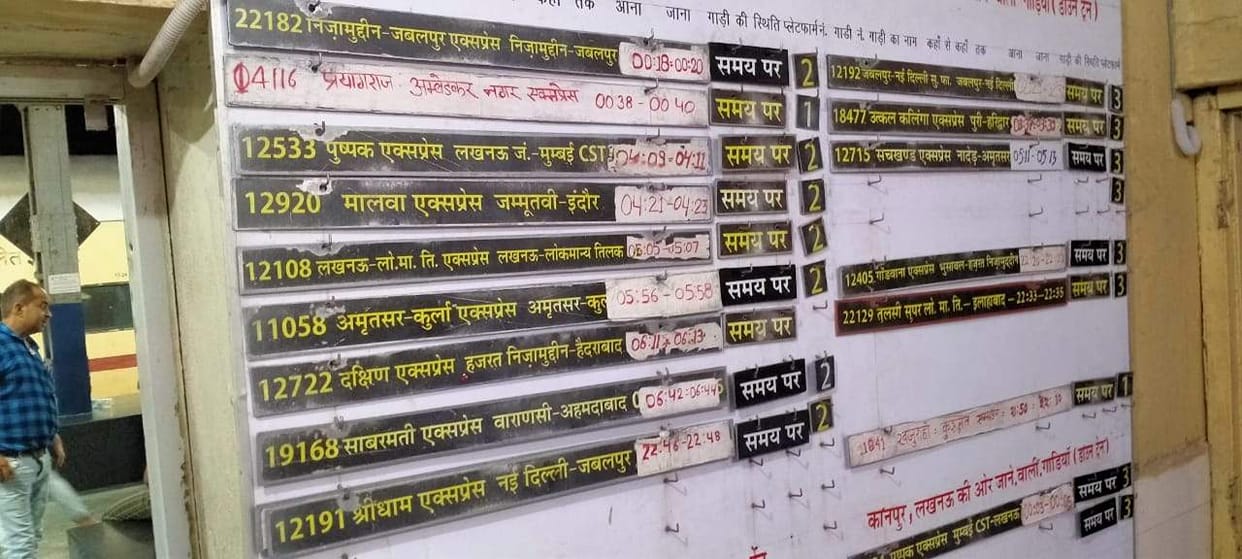 गाड़ियां (डाउन ट्रेन)
कहाँ तक आना जाना गाड़ी की स्थिति प्लेटफार्म नं. गाड़ी नं. गाड़ी का नाम कहाँ से कहाँ तक आना जाना गाड़ी की स्थिति प्लेटफार्म
22182 निज़ामुद्दीन-जबलपुर एक्सप्रेस निज़ामुद्दीन-जबलपुर 00:18-00:20 समय पर 2
04116 प्रयागराज अम्बेडकर नगर एक्सप्रेस 00:38-00 40 समय पर 1
12533 पुष्पक एक्सप्रेस लखनऊ जं.-मुम्बई CST 04:09-04:11 समय पर 2
12920 मालवा एक्सप्रेस जम्मूतवी-इंदौर 04:21-04:23 समय पर 2
12108 लखनऊ-लो.मा. ति. एक्सप्रेस लखनऊ-लोकमान्य तिलक 05:05-05:07 समय पर 2
11058 अमृतसर-कुर्ला एक्सप्रेस अमृतसर-कु 05:56-05:58 समय पर 2
12722 दक्षिण एक्सप्रेस हजरत निज़ामुद्दीन-हैदराबाद 06:11-06:13 समय पर
19168 साबरमती एक्सप्रेस वाराणसी-अहमदाबाद 06:42-06:44 समय पर 2
12191 श्रीधाम एक्सप्रेस नई दिल्ली-जबलपुर 22:46-22:48 समय पर 2
12192 जबलपुर-नई दिल्ली सु. फा. जबलपुर-नई दिल्ली समय पर 3
18477 उत्कल कलिंगा एक्सप्रेस पुरी-हरिद्वार समय पर 3
12715 सचखण्ड एक्सप्रेस नादेड़-अमृतसर 05:11-05:13 समय पर 3
3
12405 गोंडवाना एक्सप्रेस भुसावल-हजरत निज़ामुद्दीन समय पर 3
22129 तुलसी सुपर लो. मा. ति.-इलाहाबाद-22:33-22:35 समय पर 3
खजुराहो समय पर 1
कानपुर, लखनऊ की ओर जाने वाली गाड़ियाँ (डाउन ट्रेन)
समय पर 3
पुष्पक एक्सप्रेस मुम्बई CST-लखनऊ समय पर 3